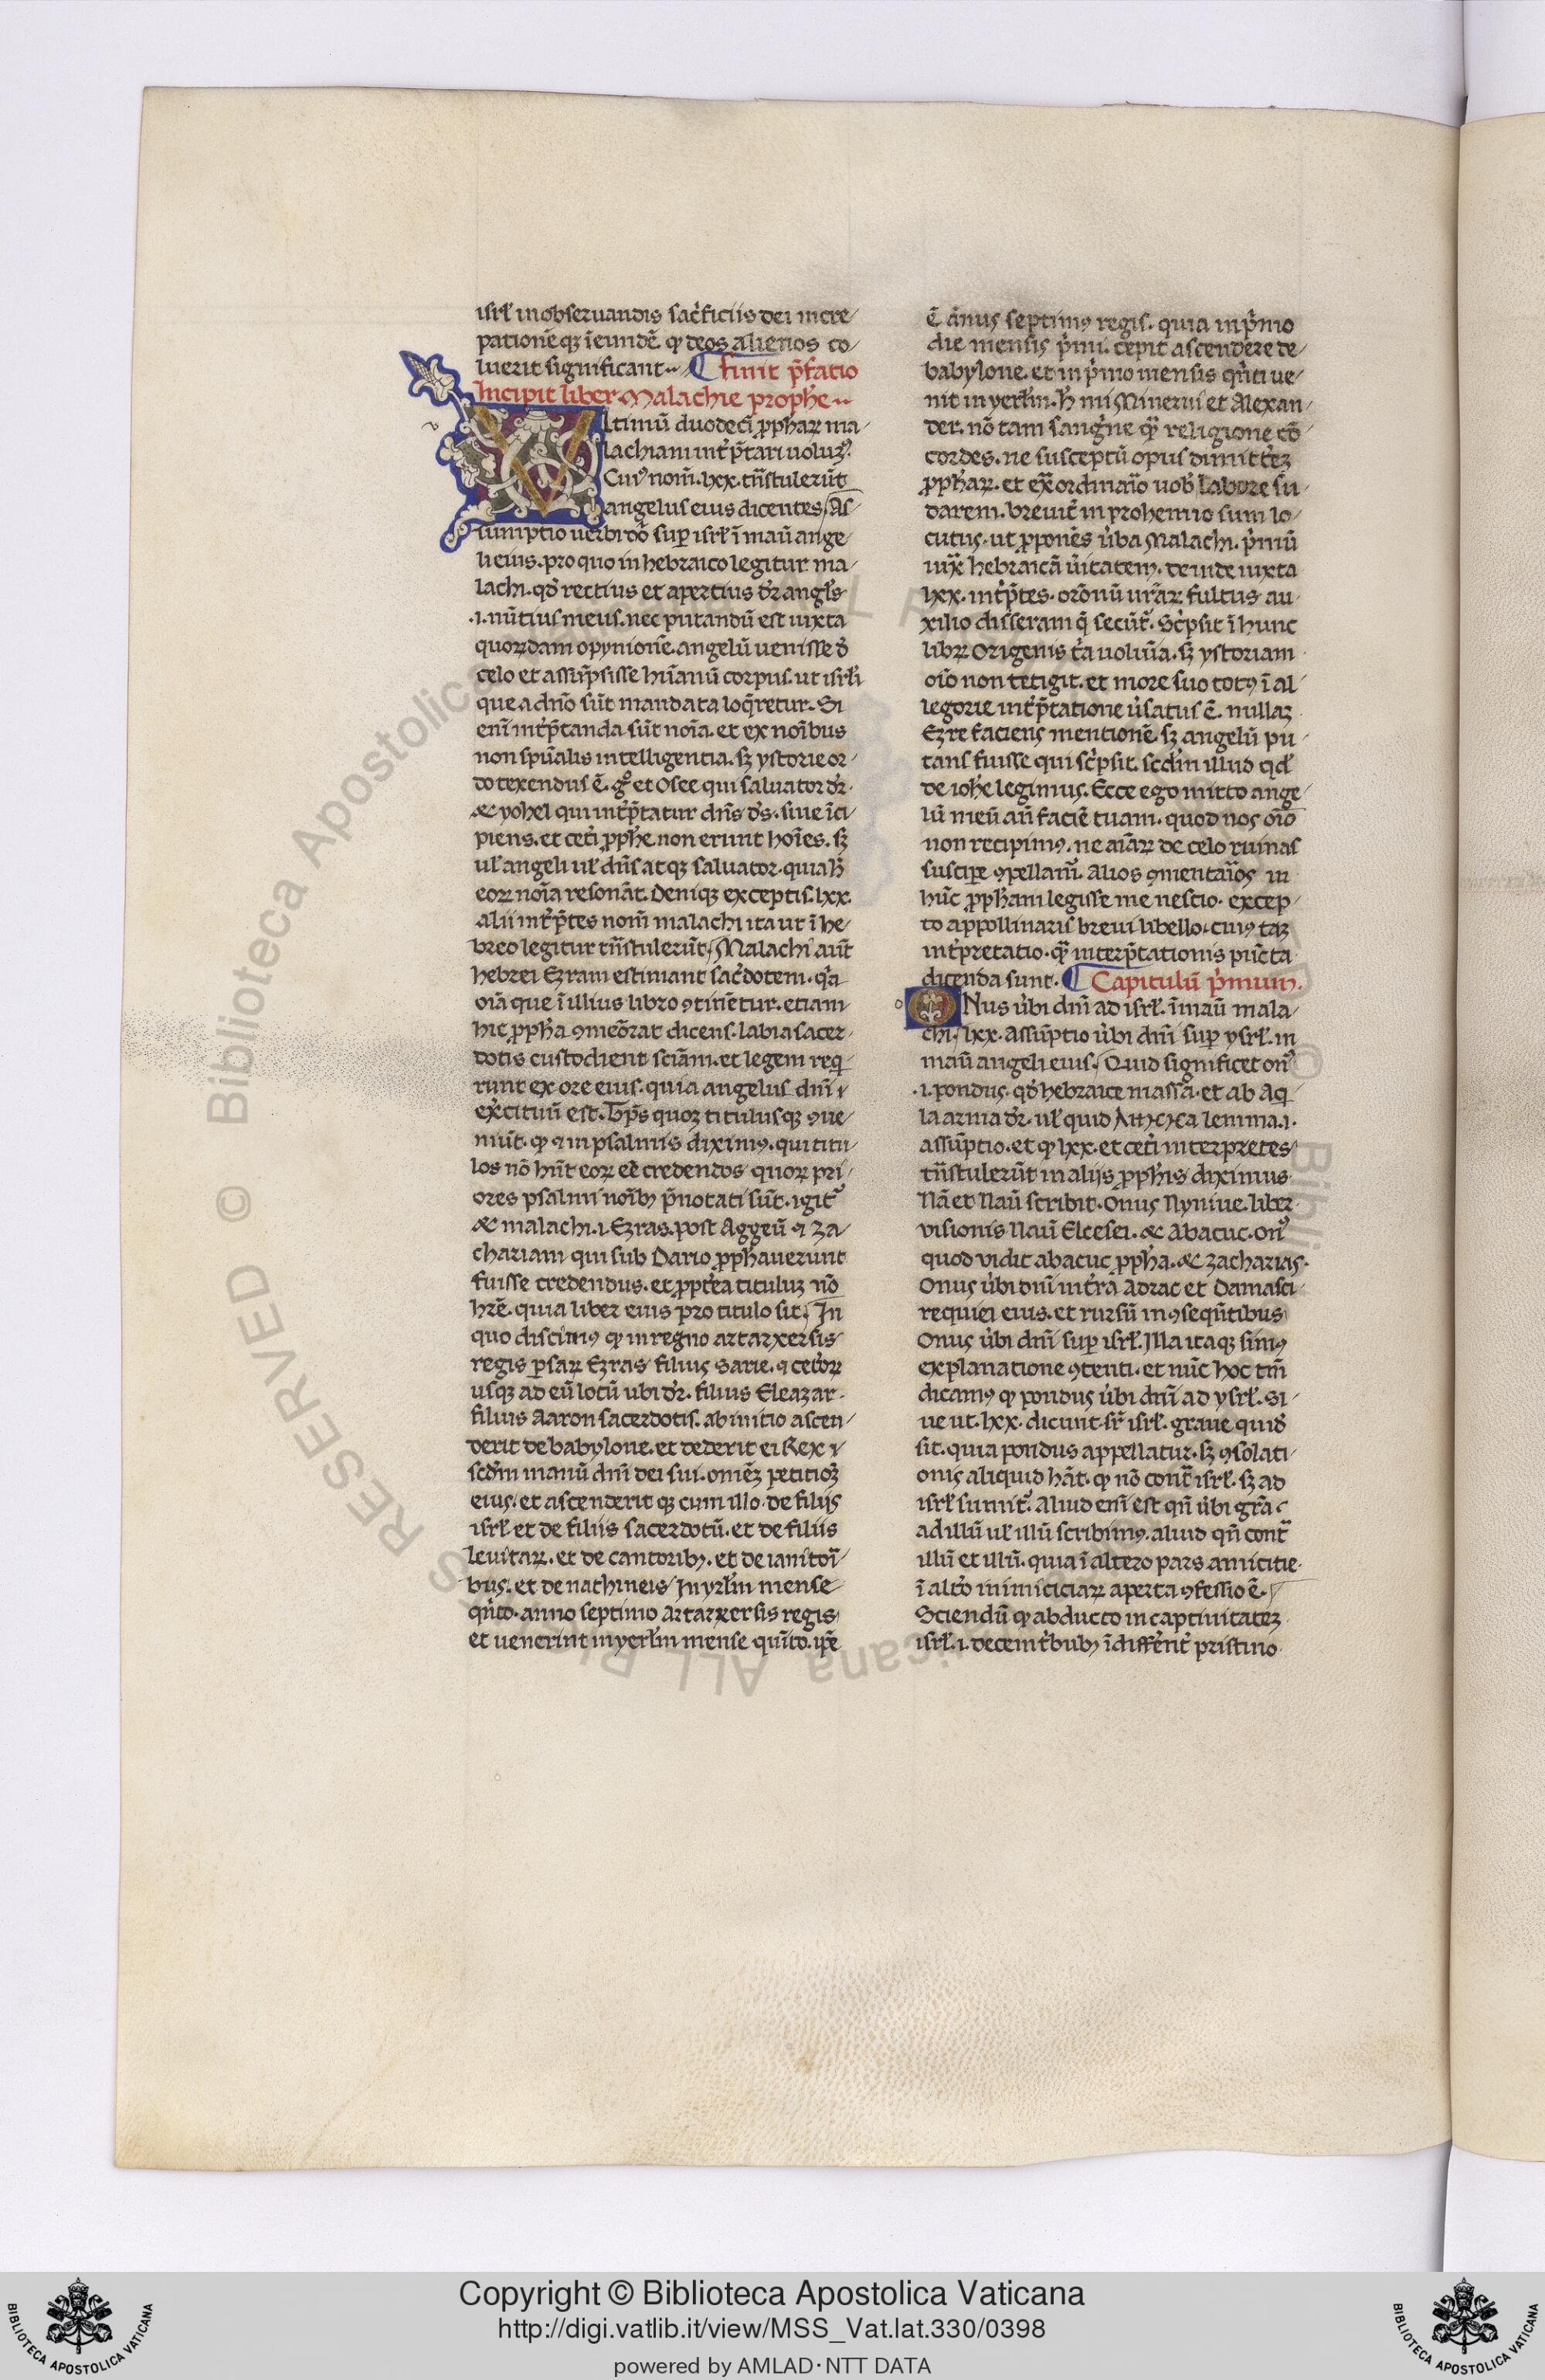 isrł in obseruandis sac̃ficiis dei incre
pationẽ qꝫ ĩeundẽ ꝙ deos alienos co
luerit significant·· ¶ finit p̃fatio
Incipit liber Malachie prophe··
VLtimũ duodecĩ ꝓphaꝝ ma
lachiam int̃p̃tari uoluꝫ
Cui⁹ nom̃. lxx. tñstulerũt
angelus eius dicentes, As
sumptio uerbi dõ suꝑ isrł ĩ maũ ange
li eius. pro quo in hebraico legitur ma
lachi. qđ rectius et apertius dr̃ angł's
.i. nũtius meus. nec putandũ est iuxta
quoꝝdam opynionẽ. angelũ uenisse đ
celo et assũpsisse hũanũ corpus. ut isrłi
que a dnõ sũt mandata loq̃retur. Si
enĩ int̃p̃tanda sũt noĩa. et ex noĩbus
non spũalis intelligentia. sꝫ ystorie or
do texendus ẽ. g° et Osee qui saluator dr̃.
⁊ yohel qui int̃p̃tatur dñs đs. siue ĩci
piens. et cet̃i ꝓphe non erunt hoĩes. sꝫ
uł angeli uł dñs atqꝫ saluator. quia h̃
eoꝝ noĩa resonãt. Deniqꝫ exceptis. lxx.
alii int̃p̃tes nom̃ malachi ita ut ĩ he
breo legitur tñstulerũt, Malachi aũt
hebrei Ezram estimant sac̃dotem. q̃a
oĩa que ĩ illius libro ꝯtinẽtur. etiam
hic ꝓpha ꝯmeõrat dicens. labia sacer
dotis custodient sciãm. et legem req̃
runt ex ore eius. quia angelus dnĩ
ex̃cituũ est. Tp̃s quoꝫ titulusqꝫ ꝯue
niũt. ꝙ ⁊ in psalmis dixim⁹. qui titu
los nõ hñt eoꝝ eẽ credendos quoꝝ pri
ores psalmi noĩbꝫ p̃notati sũt. igit̃
⁊ malachi .i. Ezras. post Aggeũ ⁊ Za
chariam qui sub Dario ꝓphauerunt
fuisse credendus. et ꝓpt̃ea tituluꝫ nõ
hr̃e. quia liber eius pro titulo sit, In
quo discim⁹ ꝙ in regno artarxersis
regis ꝑsaꝝ Ezras filius Sarie. ⁊ cet̃oꝝ
usqꝫ ad eũ locũ ubi dr̃. filius Eleazar.
filius Aaron sacerdotis. ab initio ascen
derit de babylone. et dederit ei Rex
scđm manũ dnĩ dei sui. omẽꝫ petitioꝫ
eius. et ascenderit qꝫ cum illo de filijs
isrł et de filiis sacerdotũ. et de filiis
leuitaꝝ. et de cantoribꝫ. et de ianitorĩ
bus. et de nachineis in yrłm mense
q̃nto. anno septimo Artarxersis regis.
et uenerint in yerłm mense quĩto. ip̃e
ẽ ãnus septim⁹ regis. quia in p̃mo
die mensis p̃mi. cepit ascendere de
babylone. et in p̃mo mensis q̃nti ue
nit in yerłm. h̃ mi Minerui et Alexan
der. nõ tam sanguĩne q̃ religione cõ
cordes. ne susceptũ opus dimitt̃eꝫ
ꝓphaꝝ. et ex̃ordinaĩo uob̃ labore su
darem. breuit̃ in prohemio sum lo
cutus. ut ꝓponẽs ũba Malachi. p̃mũ
iux̃ hebraicã ũitatem. deinde iuxta
lxx. int̃p̃tes. orõnũ urãꝝ fultus au
xilio disseram q̃ secũt̃. Sc̃psit ĩ hunc
libꝝ Origenis t̃a uolũa. sꝫ ystoriam
oĩo non tetigit. et more suo tot⁹ ĩ al
legorie int̃p̃tatione ũsatus ẽ. nullaꝫ
Ezre faciens mentionẽ. sꝫ angelũ pu
tans fuisse qui sc̃psit. scđm illud qđ
de iohẽ legimus. Ecce ego mitto ange
lũ meũ añ faciẽ tuam. quod nos oĩo
non recipim⁹. ne aĩaꝝ de celo ruinas
suscipe ꝯpellam̃. Alios ꝯmentaĩos in
hũc ꝓpham legisse me nescio. excep
to appollinaris breui libello. cui⁹ taꝫ
int̃pretatio. q̃ interp̃tationis pũcta
dicenda sunt. ¶ Capitulũ p̃mum.
ONus ũbi dnĩ ad isrł. ĩ maũ mala
chi, lxx. Assũptio ũbi dnĩ suꝑ ysrł. in
maũ angeli eius, Quid significet on⁹
.i. pondus. qđ hebraice massa. et ab Aq̃
la arma dr̃. uł quid lemma .i.
assũptio. et ꝙ lxx. et cet̃i interpretes
tñstulerũt in alijs ꝓphis diximus.
Nã et Naũ scribit. Onus Nyniue. liber
visionis Naũ Elcesei. ⁊ Abacuc. on⁹
quod vidit abacuc ꝓpha. ⁊ Zacharias.
Onus ũbi dnĩ in t̃ra Adrac et Damasci
requiei eius. et rursũ in ꝯseq̃ntibus
Onus ũbi dnĩ suꝑ isrł. Illa itaqꝫ sim⁹
explanatione ꝯtenti. et nũc hoc tm̃
dicam⁹ ꝙ pondus ũbi dnĩ ad ysrł. Si
ue ut. lxx. dicunt. sr̃ isrł. graue quid
sit. quia pondus appellatur. sꝫ ꝯsolati
onis aliquid hãt. ꝙ nõ cont̃ isrł. sꝫ ad
isrł sumit̃. Aliud enĩ est qñ ũbi grã
ad illũ uł illũ scribim⁹. aliud qñ cont̃
illũ et illũ. quia ĩ altero pars amicitie.
ĩ alt̃o inimiciciaꝝ aperta ꝯfessio ẽ.
Sciendũ ꝙ abducto in captiuitateꝫ
isrł .i. decem t̃bubꝫ ĩdiffer̃nt̃ pristino
Copyright © Biblioteca Apostolica Vaticana
http://digi.vatlib.it/view/MSS_Vat.lat.330/0398
powered by AMLAD·NTT DATA
BIBLIOTECA APOSTOLICA VATICANA
BIBLIOTECA APOSTOLICA VATICANA